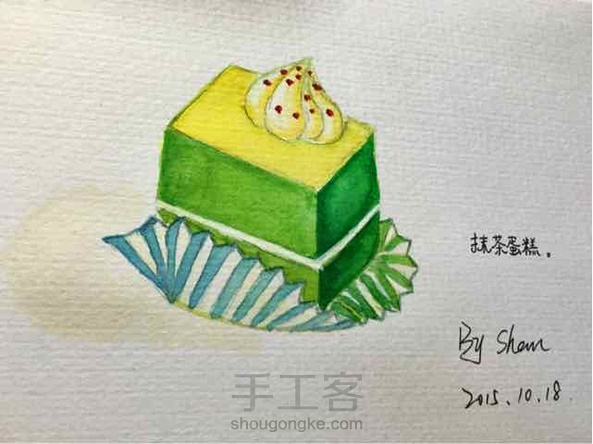 抹茶蛋糕。
By Shan
2015.10.18.
手工客
shougongke.com